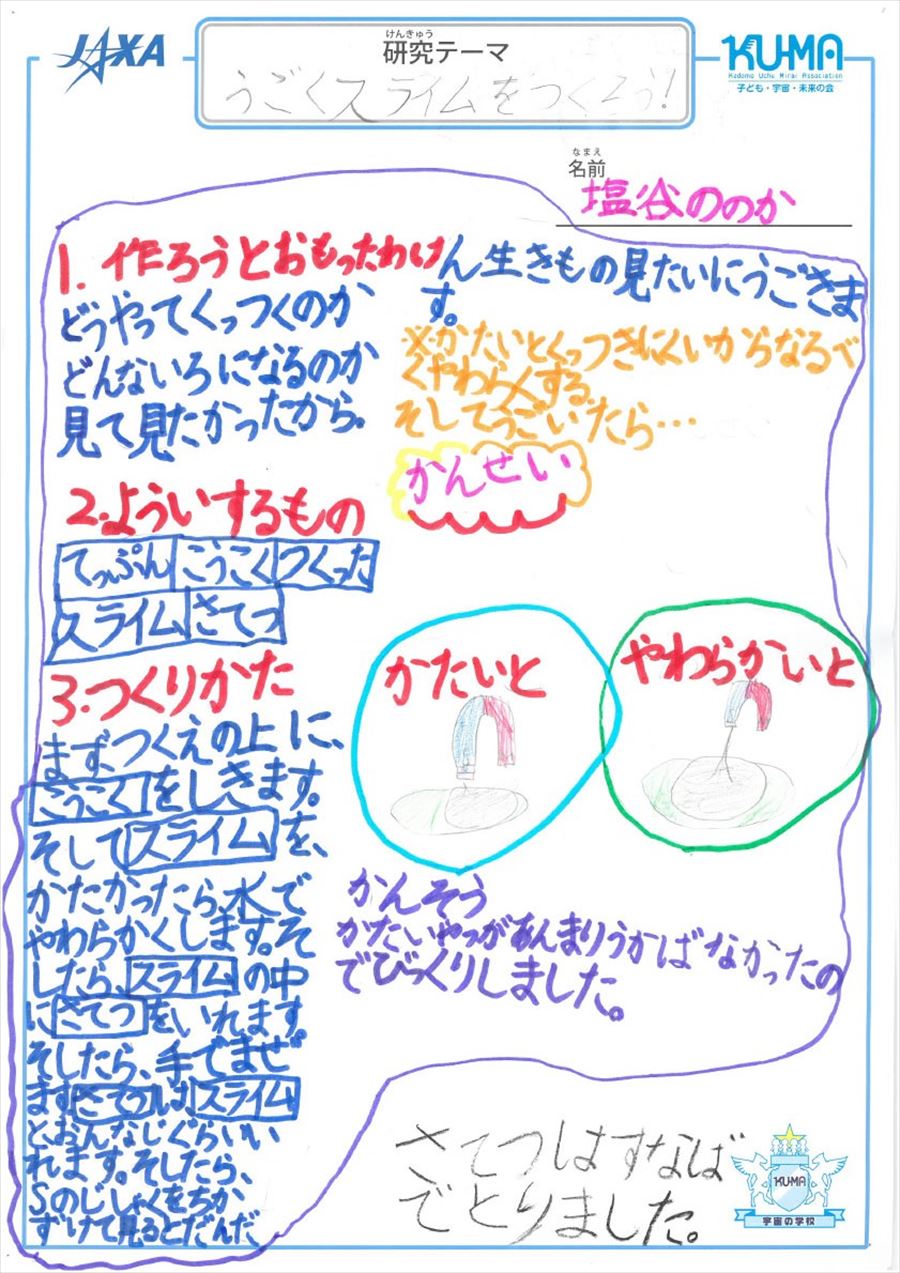 JAXA
けんきゅう
研究テーマ
うごくスライムをつくろう!
KU-MA
Kodomo Uchu Mirai Association
子ども・宇宙・未来の会
なまえ
名前
塩谷ののか
1. 作ろうとおもったわけ
どうやってくっつくのか
どんないろになるのか
見て見たかったから.
2.よういするもの
てっぷん こうこく つくった
スライム さてつ
3.つくりかた
まず、つくえの上に、
こうこくをしきます。
そしてスライムを、
かたかったら、水で
やわらかくします。そ
したら、スライムの中
にさてつをいれます。
そしたら、手でまぜ
ます。さてつは、スライム
とおんなじぐらいい
れます。そしたら、
Sのじしゃくをちか
ずけて見るとだんだ
ん生きもの見たいにうごきま
す。
※かたいとくっつきにくいからなるべ
くやわらくする.
そしてうごいたら…
かんせい
かたいと
やわらかいと
かんそう
かたいやつがあんまりうかばなかったの
でびっくりしました。
さてつはすなば
でとりました。
KUMA
宇宙の学校